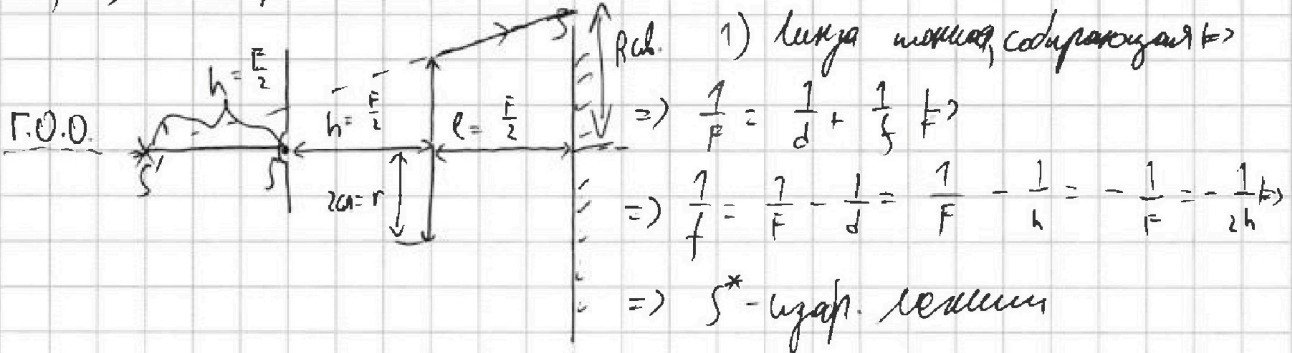 h = F/2
Г.О.О.
S'
S
h = F/2
l = F/2
2см = r
Rсв.
1) линза тонкая, собирающая =>
=> 1/F = 1/d + 1/f =>
=> 1/f = 1/F - 1/d = 1/F - 1/h = - 1/F = - 1/2h =>
=> S* - изобр. лежит